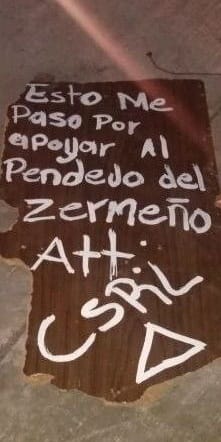 Esto Me
Paso Por
apoyar Al
Pendejo del
Zermeño
Att:
CSRL